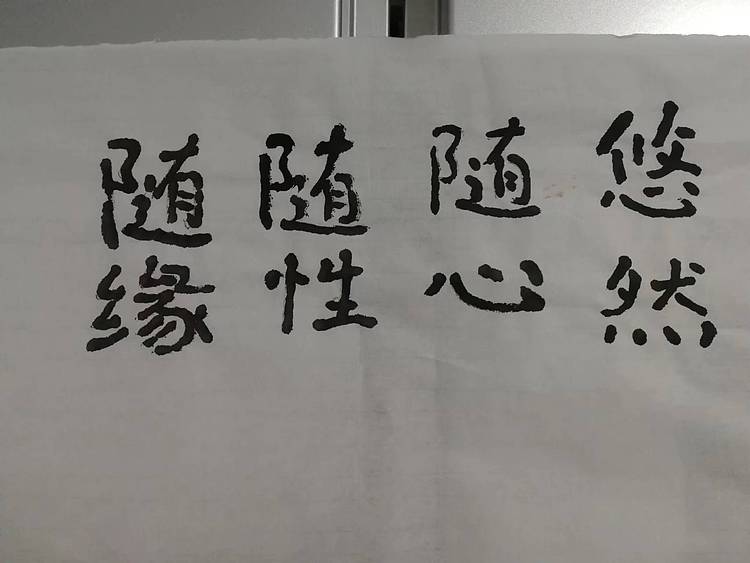 悠然
随心
随性
随缘